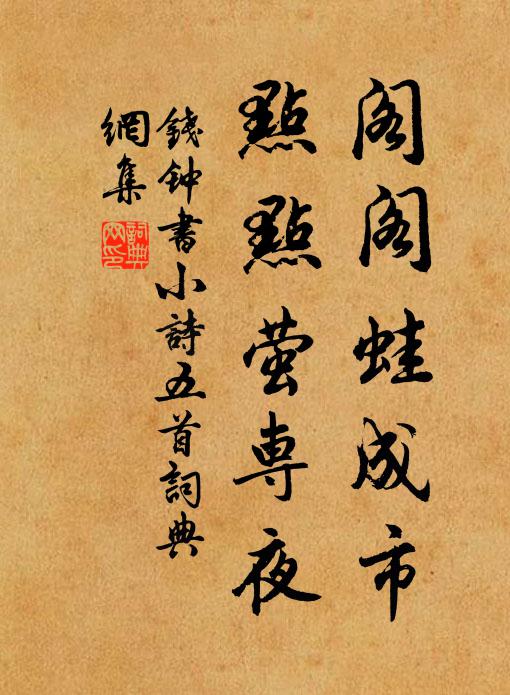 閣閣蛙成市
點點螢專夜
錢钟書小詩五首詞典
網集
詞典
网印